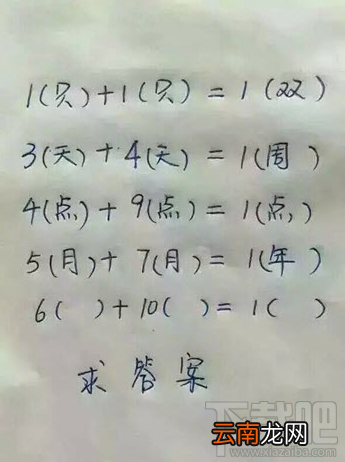 1(只)+1(只)=1(双)
3(天)+4(天)=1(周)
4(点)+9(点)=1(点)
5(月)+7(月)=1(年)
6( )+10( )=1( )
求答案
下载吧
www.xiazaiba.com
云南龙网